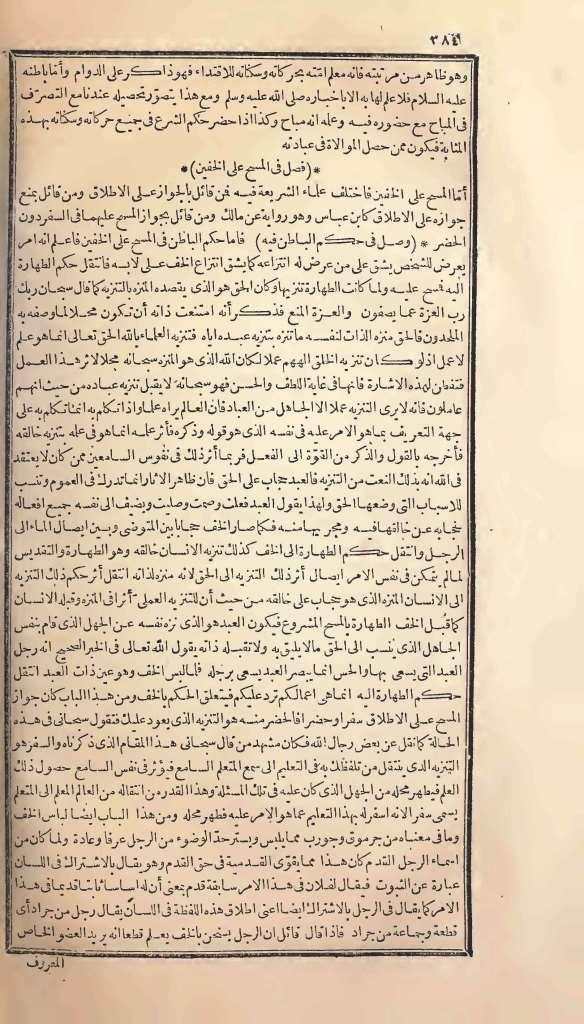 ٣٨٤
وهو ظاهر من مرتبته فانه معلم امته بحركاته وسكناته للاقتداء فهو ذاكر على الدوام وأما باطنه
عليه السلام فلا علم لها به الا باخباره صلى الله عليه وسلم ومع هذا يتصور تحصيله عندنا مع التصرف
فى المباح مع حضوره فيه وعلمه انه مباح وكذا اذا حضر حكم الشرع فى جميع حركاته وسكناته بهذه
المثابة فيكون ممن حصل الموالاة فى عبادته
*(فصل فى المسح على الخفين)*
أما المسح على الخفين فاختلف علماء الشريعة فيه فمن قائل بالجواز على الاطلاق ومن قائل بمنع
جوازه على الاطلاق كابن عباس وهو رواية عن مالك ومن قائل بجواز المسح عليهما فى السفر دون
الحضر * (وصل فى حكم الباطن فيه) فاما حكم الباطن فى المسح على الخفين فاعلم انه امر
يعرض للشخص يشق على من عرض له انتزاعه كما يشق انتزاع الخف على لابسه فانتقل حكم الطهارة
اليه فمسح عليه ولما كانت الطهارة تنزيها وكان الحق هو الذى يقصده المنزه بالتنزيه كما قال سبحان ربك
رب العزة عما يصفون والعزة المنع فذكر أنه امتنعت ذاته أن تكون محلا لما وصفه به
الملحدون فالحق منزه الذات لنفسه ما تنزه بتنزيه عبده اياه فتنزيه العلماء بالله الحق تعالى انما هو علم
لا عمل اذ لو كان تنزيه الخلق الههم عملا لكان الله الذى هو المنزه سبحانه محلا لاثر هذا العمل
فتفطن لهذه الاشارة فانها فى غاية اللطف والحسن فهو سبحانه لا يقبل تنزيه عباده من حيث انهم
عاملون فانه لا يرى التنزيه عملا الا الجاهل من العباد فان العالم يراه علما واذا تكلم به انما تكلم به على
جهة التعريف بما هو الامر عليه فى نفسه الذى هو قوله وذكره فأثر علمه انما هو فى علمه بتنزيه خالقه
فأخرجه بالقول والذكر من القوة الى الفعل فربما أثر ذلك فى نفوس السامعين ممن كان لا يعتقد
فى الله انه بذلك النعت من التنزيه فالعبد حجاب على الحق فان ظاهر الاثار انما تدرك فى العموم وتنسب
للاسباب التى وضعها الحق ولهذا يقول العبد فعلت وصمت وصليت ويضيف الى نفسه جميع افعاله
لحجابه عن خالقها فيه ومجريها منه فكما صار الخف حجابا بين المتوضئ وبين ايصال الماء الى
الرجل وانتقل حكم الطهارة الى الخف كذلك تنزيه الانسان خالقه وهو الطهارة والتقديس
لما لم يتمكن فى نفس الامر ايصال أثر ذلك التنزيه الى الحق لانه منزه لذاته انتقل أثر حكم ذلك التنزيه
الى الانسان المنزه الذى هو حجاب على خالقه من حيث أن للتنزيه العملى أثرا فى المنزه وقبله الانسان
كما قبل الخف الطهارة بالمسح المشروع فيكون العبد هو الذى نزه نفسه عن الجهل الذى قام بنفس
الجاهل الذى ينسب الى الحق ما لا يليق به ولا تقبله ذاته يقول الله تعالى فى الخبر الصحيح انه رجل
العبد التى يسعى بها والحس انما يبصر العبد يسعى برجله فلما لبس الخف وهو عين ذات العبد انتقل
حكم الطهارة اليه انما هى اعمالكم ترد عليكم فيتعلق الحكم بالخف ومن هذا الباب كان جواز
المسح على الاطلاق سفرا وحضرا فالحضر منه هو التنزيه الذى يعود عليك فتقول سبحانى فى هذه
الحالة كما نقل عن بعض رجال الله فكان مشهد من قال سبحانى هذا المقام الذى ذكرناه والسفر هو
التنزيه الذى ينتقل من تلفظك به فى التعليم الى سمع المتعلم السامع فيؤثر فى نفس السامع حصول ذلك
العلم فيطهر محله من الجهل الذى كان عليه فى تلك المسئلة وهذا القدر من انتقاله من العالم المعلم الى المتعلم
يسمى سفرا لانه اسفر له بهذا التعليم عما هو الامر عليه فطهر محله ومن هذا الباب ايضا لباس الخف
وما فى معناه من جرموق وجورب مما يلبس ويستر حد الوضوء من الرجل عرفا وعادة ولما كان من
اسماء الرجل القدم كان هذا مما يقوى القدمية فى حق القدم وهو يقال بالاشتراك فى اللسان
عبارة عن الثبوت فيقال لفلان فى هذا الامر سابقة قدم بمعنى أن له اساسا ثابتا قديما فى هذا
الامر كما يقال فى الرجل بالاشتراك ايضا اعنى اطلاق هذه اللفظة فى اللسان يقال رجل من جراد أى
قطعة وجماعة من جراد فاذا قال قائل ان الرجل يسخن بالخف يعلم قطعا انه يريد العضو الخاص
المعروف